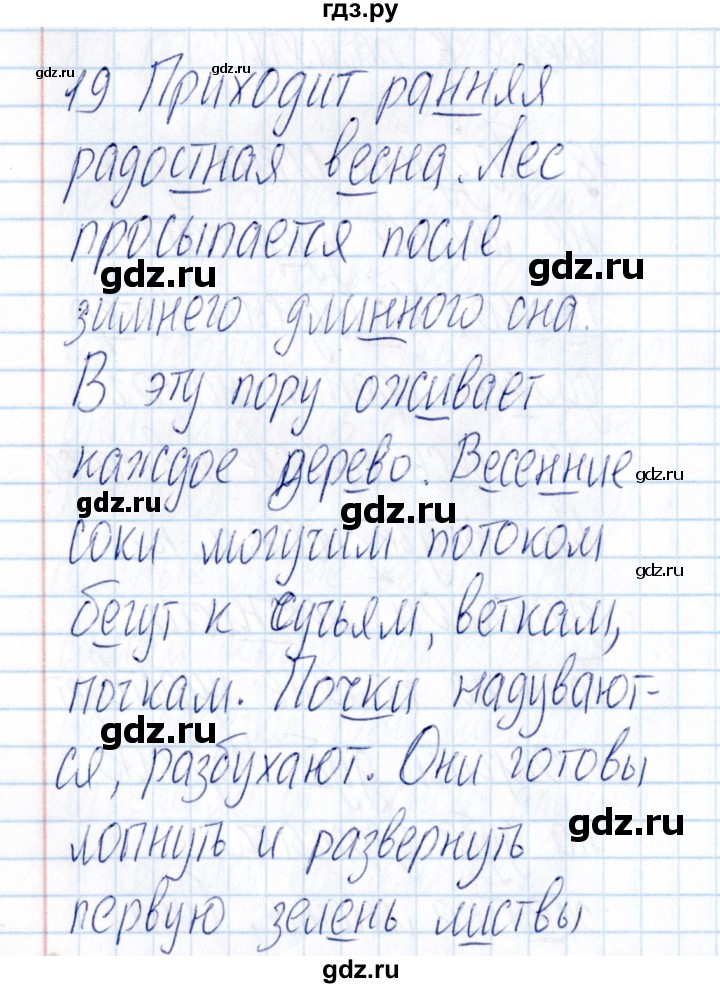 гдз.ру
gdz.ru gdz.ru
19 Приходит ранняя
радостная весна. Лес
просыпается после
gdz.ru gdz.ru
зимнего длинного сна.
В эту пору оживает
каждое дерево. Весенние
gdz.ru gdz.ru gdz.ru
соки могучим потоком
gdz.ru
бегут к сучьям, веткам,
почкам. Почки надувают-
gdz.ru
ся, разбухают. Они готовы
gdz.ru
лопнуть и развернуть
первую зелень листвы
gdz.ru